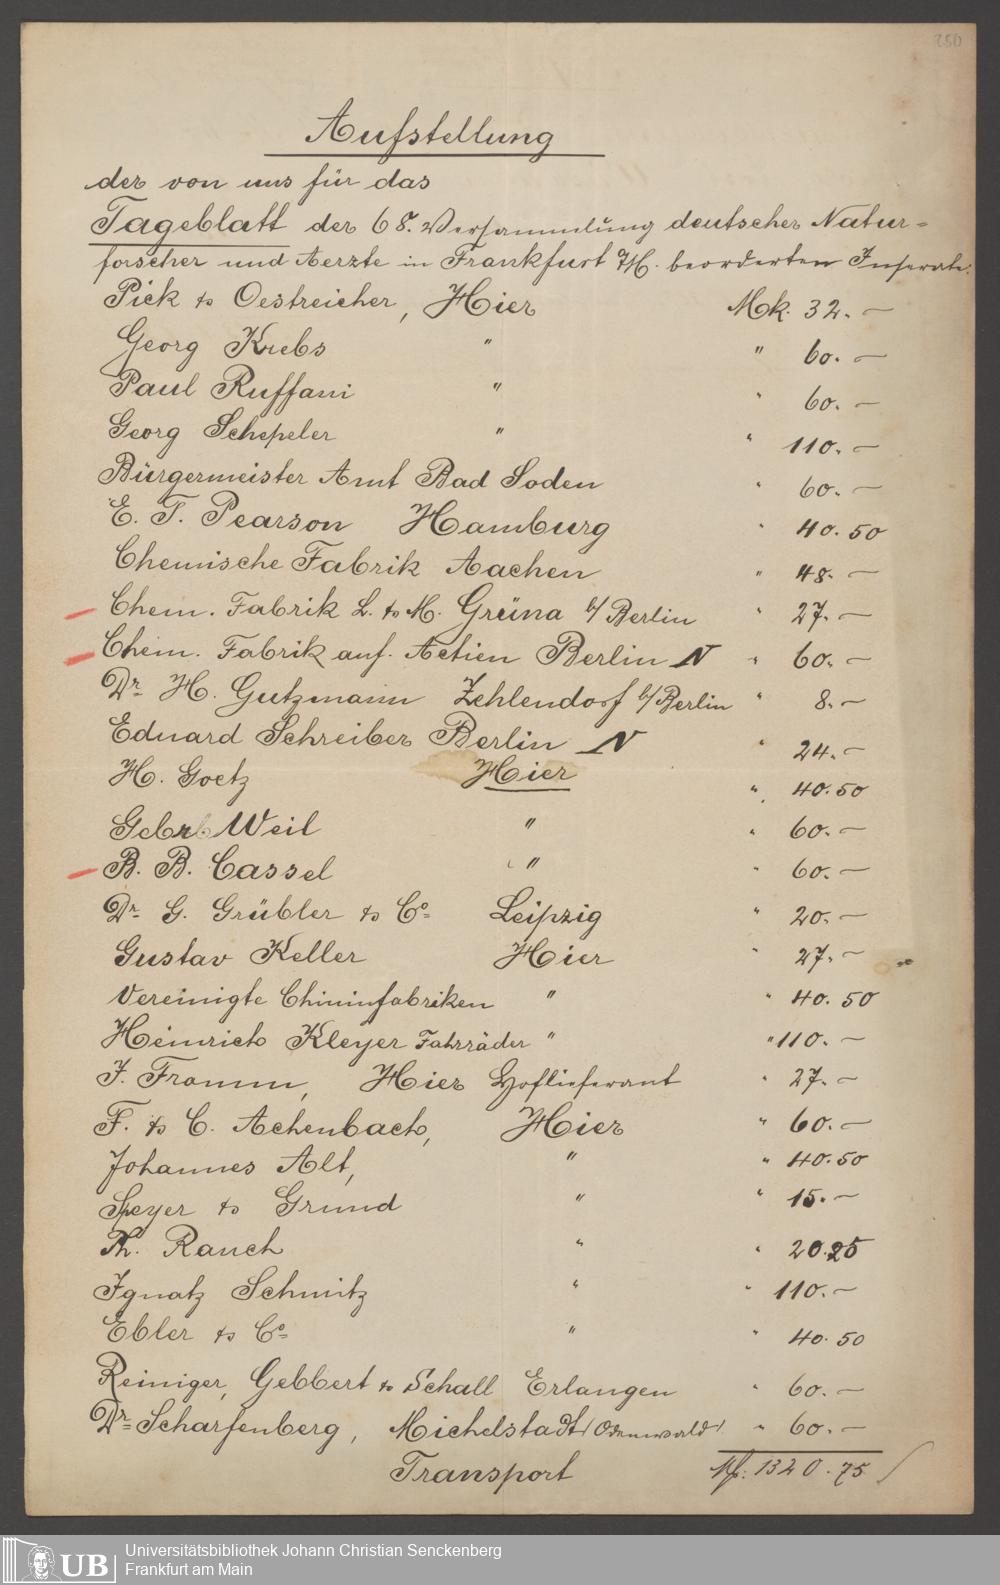 250
Aufstellung
der von uns für das
Tageblatt der 68. Versammlung deutscher Natur-
forscher und Aerzte in Frankfurt a/M. beorderten Inserate.
Pick & Oestreicher, Hier Mk. 32. —
Georg Krebs " " 60. —
Paul Ruffani " " 60. —
Georg Schepeler " " 110. —
Bürgermeister Amt Bad Soden " 60. —
E. T. Pearson Hamburg " 40. 50
Chemische Fabrik Aachen " 48. —
Chem. Fabrik L. & M. Grüna b/ Berlin " 27. —
Chem. Fabrik auf. Actien Berlin N " 60. —
Dr H. Gutzmann Zehlendorf b/ Berlin " 8. —
Eduard Schreiber Berlin N " 24. —
H. Goetz Hier " 40. 50
Gebr Weil " " 60. —
B. B. Cassel " " 60. —
Dr G. Grübler & Co Leipzig " 20. —
Gustav Keller Hier " 27. —
Vereinigte Chininfabriken " " 40. 50
Heinrich Kleyer Fahrräder " " 110. —
J. Fromm, Hier Hoflieferant " 27. —
F. & C. Achenbach, Hier " 60. —
Johannes Alt, " " 40. 50
Speyer & Grund " " 15. —
Th. Rauch " " 20. 25
Ignatz Schmitz " " 110. —
Ebler & Co " " 40. 50
Reiniger, Gebbert & Schall Erlangen " 60. —
Dr Scharfenberg, Michelstadt (Odenwald) " 60. —
Transport M. 1320. 75
UB Universitätsbibliothek Johann Christian Senckenberg
Frankfurt am Main